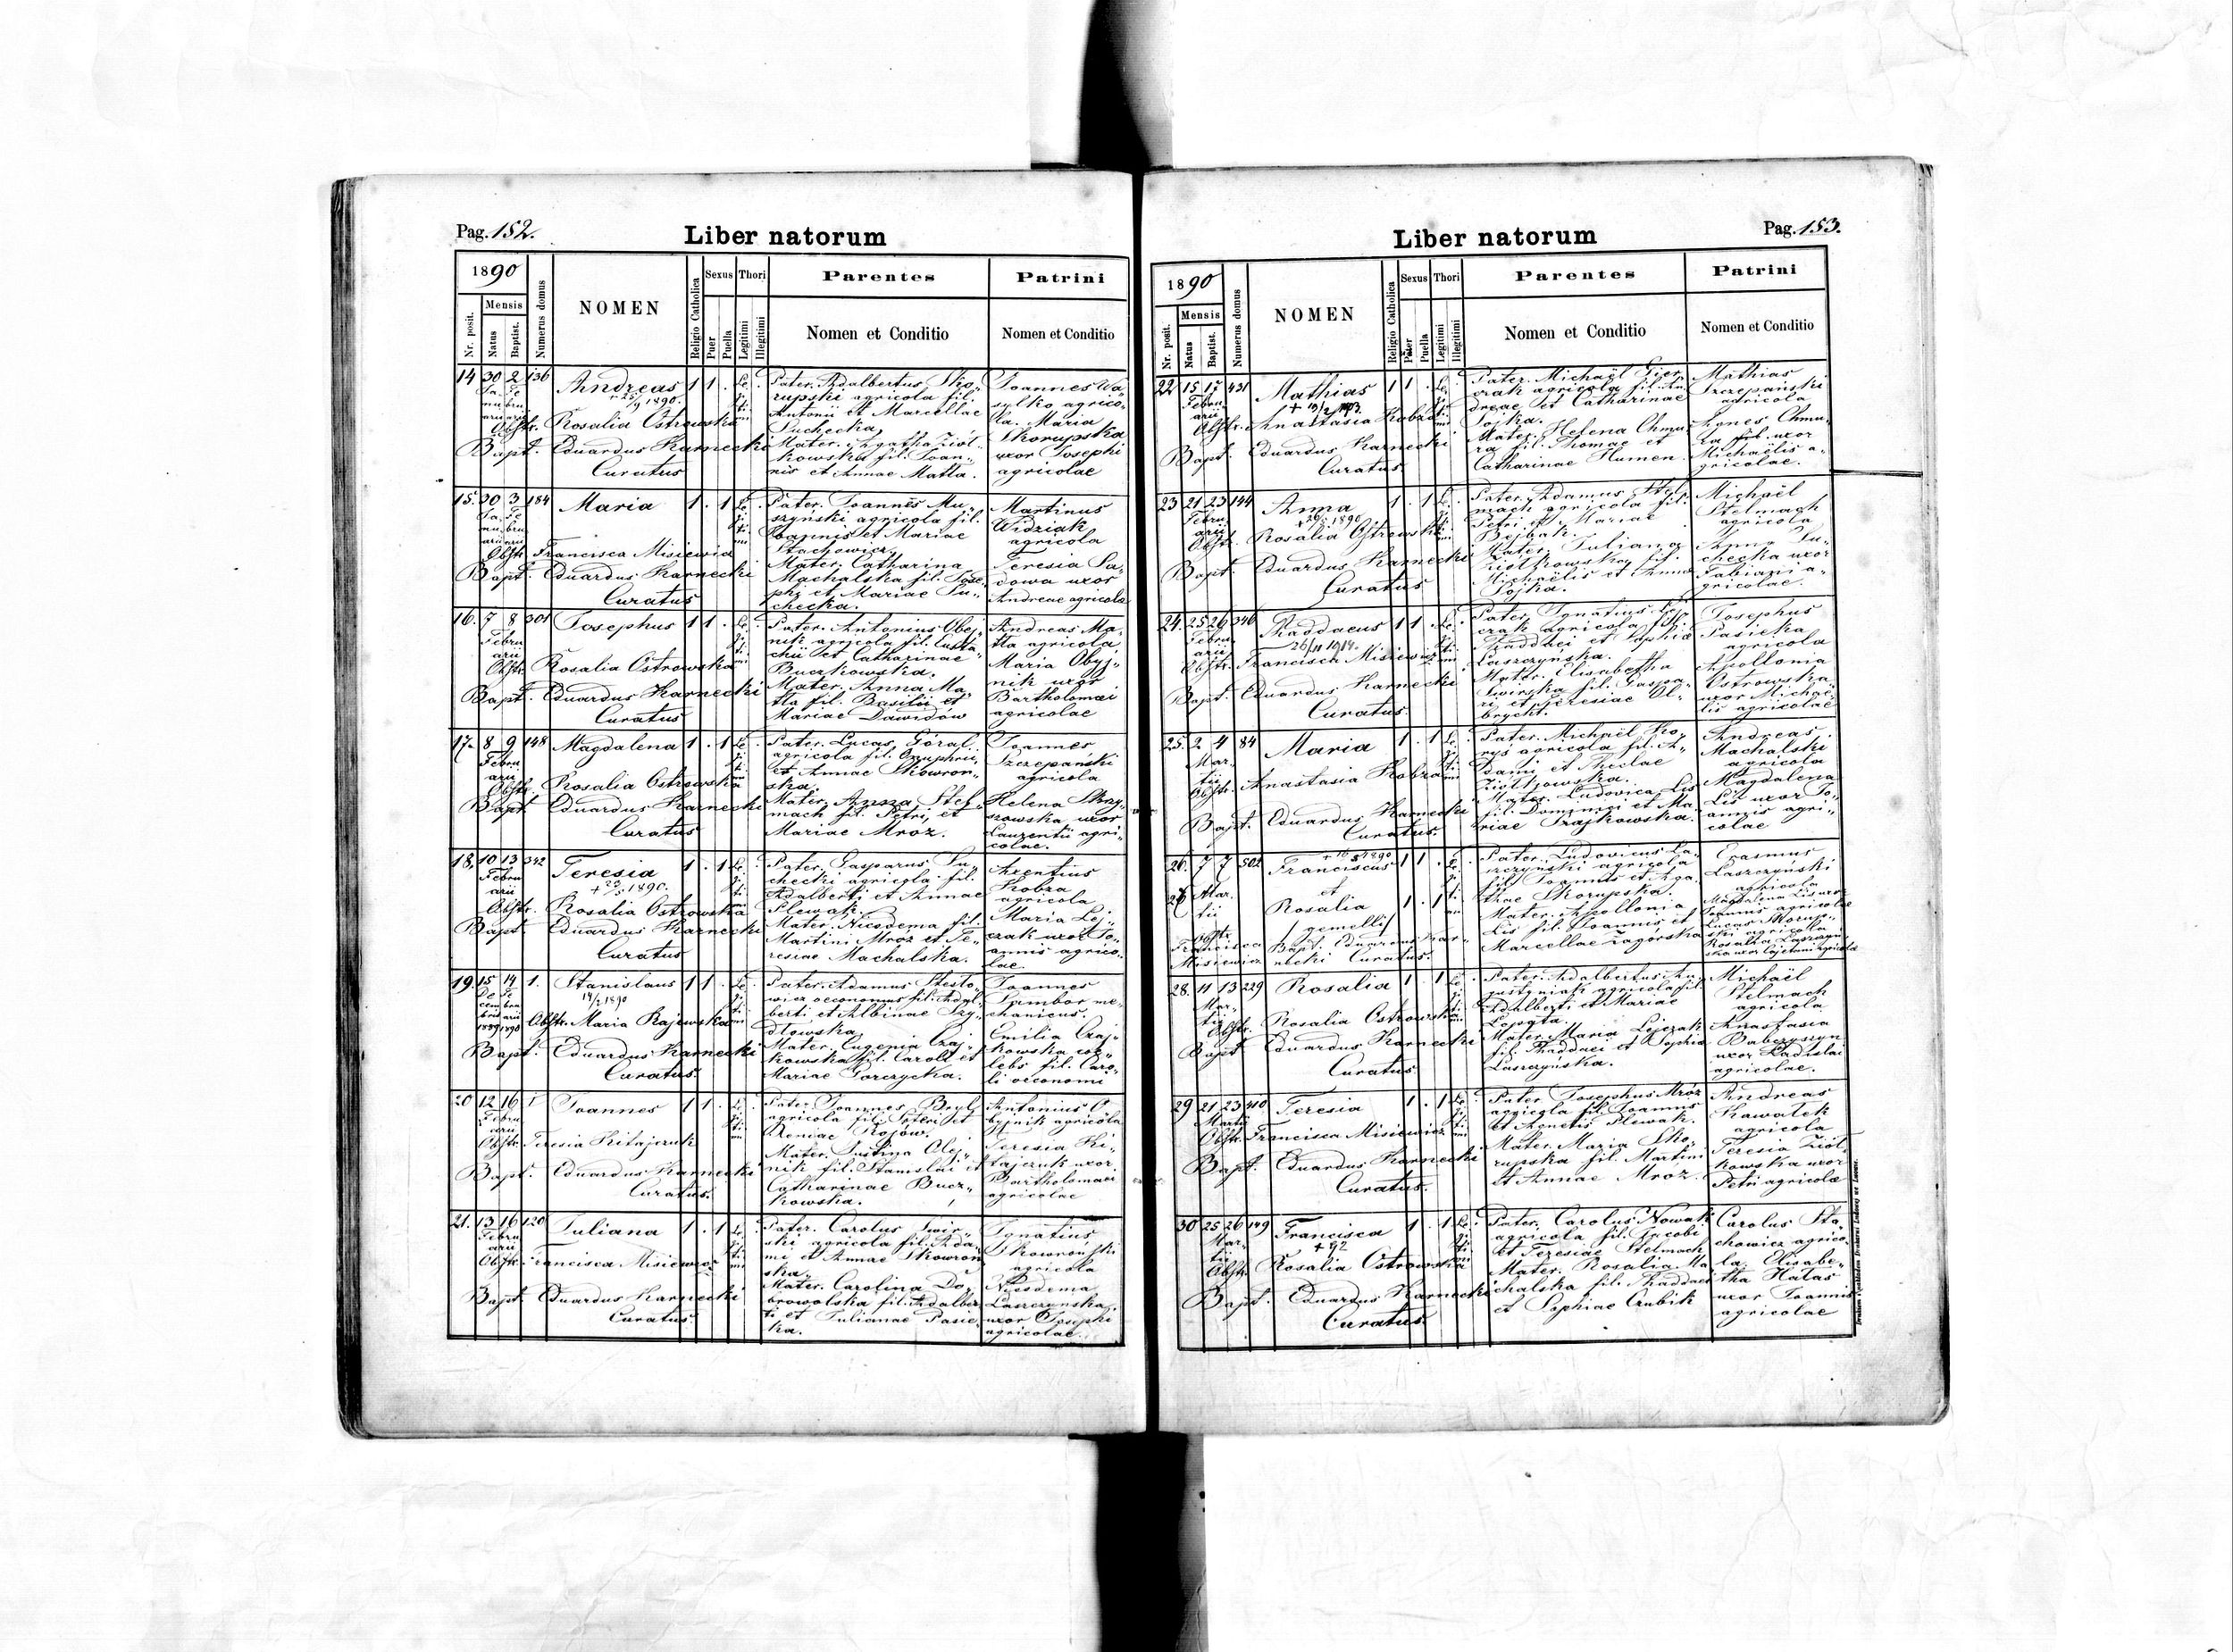 Pag. 152.
Liber natorum
1890
Mensis
Nr. posit.
Natus
Baptist.
Numerus domus
NOMEN
Religio Catholica
Sexus
Puer
Puella
Thori
Legitimi
Illegitimi
Parentes
Nomen et Conditio
Patrini
Nomen et Conditio
14 30 2 136 Andreas 1 1
Obstr. Rosalia Ostrowska
Bapt. Eduardus Karnecki
Curatus
Pater. Adalbertus Sko„
rupski agricola fil.
Antonii et Marcellae
Suchecka
Mater. Agatha Ziół„
kowska fil. Joan„
nis et Annae Matla.
Joannes Wa„
sylko agrico„
la. Maria
Skorupska
uxor Josephi
agricolae
15. 30 3 184 Maria 1 . 1
Obstr. Francisca Misiewicz
Bapt. Eduardus Karnecki
Curatus
Pater. Joannes Mu„
szyński agricola fil.
Joannis et Mariae
Stachowicz
Mater. Catharina
Machalska fil. Jose„
phi et Mariae Su„
checka.
Martinus
Widziak
agricola
Teresia Sa„
dowa uxor
Andreae agricola
16. 7 8 301 Josephus 1 1
Februarii
Obstr. Rosalia Ostrowska
Bapt. Eduardus Karnecki
Curatus
nik agricola fil. Eusta„
chii et Catharinae
Buczkowska.
Mater. Anna Ma„
tla fil. Basilii et
Mariae Dawidów
Andreas Ma„
tla agricola
Maria Obyj„
nik uxor
Bartholomaei
agricolae
17. 8 9 148 Magdalena 1 . 1
Februarii
Obstr. Rosalia Ostrowska
Bapt. Eduardus Karnecki
Curatus
Pater. Lucas Góral
agricola fil. Onuphrii
et Annae Skowron„
ska.
Mater. Anna Stel„
mach fil. Petri, et
Mariae Mroz.
Joannes
Szczepanski
agricola
Helena
uxor
Laurentii agri„
colae.
18. 10 13 342 Teresia 1 . 1
Februarii
Obstr. Rosalia Ostrowska
Bapt. Eduardus Karnecki
Curatus
Pater. Gasparus Su„
checki agricola fil.
Adalberti et Annae
Plewak.
Mater. Nicodema fil.
Martini Mroz et Te„
resiae Machalska.
Arentius
Kobza
agricola
Maria Lej„
czak uxor Jo„
annis agrico„
lae.
19. 15 14 1. Stanislaus 1 1
Obstr. Maria Rajewska
Bapt. Eduardus Karnecki
Curatus.
Pater. Adamus Stesło„
wicz oeconomus fil. Adal„
berti et Albinae Szy„
dłowska
Mater. Eugenia Czaj„
kowska fil. Caroli et
Mariae Gorczycka.
Joannes
Sambor me„
chanicus.
Emilia Czaj„
kowska coe„
lebs fil. Caro„
li oeconomi
20 12 16 Joannes 1 1
Februarii
Obstr. Teresia Kitajczuk
Bapt. Eduardus Karnecki
Curatus.
Pater. Joannes Bryl
agricola fil. Petri et
Xeniae
Mater. Justina Olej„
nik fil. Stanislai et
Catharinae Bucz„
kowska.
Antonius O„
byjnik agricola
Teresia Ki„
tajczuk uxor
Bartholomaei
agricolae
21. 13 16 120 Juliana 1 . 1
Februarii
Obstr. Francisca Misiewicz
Bapt. Eduardus Karnecki
Curatus
Pater. Carolus Swir„
ski agricola fil. Ada„
mi et Annae Skowron
ska.
Mater. Carolina Do„
browolska fil. Adalber
ti et Julianae Pasie„
ka.
Ignatius
Skowroński
agricola
Nicodema
Laszczynska
uxor Josephi
agricolae.
Pag. 153.
Liber natorum
1890
Mensis
Nr. posit.
Natus
Baptist.
Numerus domus
NOMEN
Religio Catholica
Sexus
Puer
Puella
Thori
Legitimi
Illegitimi
Parentes
Nomen et Conditio
Patrini
Nomen et Conditio
22 15 17 431 Mathias 1 1
Februarii
Obstr. Anastasia Kobza
Bapt. Eduardus Karnecki
Curatus.
Pater. Michaël Gier„
czak agricola fil. An„
dreae et Catharinae
Sojka.
Mater. Helena Chmu
ra fil. Thomae et
Catharinae Humen.
Mathias
Szczepański
agricola
Agnes Chmu„
ra uxor
Michaëlis a„
gricolae.
23 21 23 144 Anna 1 . 1
Februarii
Obstr. Rosalia Ostrowska
Bapt. Eduardus Karnecki
Curatus
Pater. Adamus Stel„
mach agricola fil.
Petri et Mariae
Bejbak.
Mater. Juliana
Ziółkowska fil.
Michaëlis et Annae
Sojka.
Michaël
Stelmach
agricola
Anna Su„
checka uxor
Fabiani a„
gricolae.
24. 25 26 346 Thaddaeus 1 1
26/11 1914.
Februarii
Obstr. Francisca Misiewicz
Bapt. Eduardus Karnecki
Curatus.
Pater. Ignatius Lej„
czak agricola fil.
Thaddaei et Sophiae
Laszczyńska.
Mater. Elisabetha
Swirska fil. Gaspa„
ri et Teresiae Ol„
brycht.
Josephus
Pasieka
agricola
Apollonia
Ostrowska
uxor Michaë„
lis agricolae
25. 2 4 84 Maria 1 . 1
Martii
Obstr. Anastasia Kobza
Bapt. Eduardus Karnecki
Curatus.
Pater. Michaël Ko„
ryś agricola fil. A„
dami et Theclae
Ziółkowska.
Mater. Ludovica Lis
fil. Dominici et Ma„
riae Frajkowska.
Andreas
Machalski
agricola
Magdalena
Lis uxor Jo„
annis agri„
colae
26. 7 7 502 Franciscus 1 1
et
27 Martii
Rosalia 1 . 1
/gemelli/
Obstr. Francisca Misiewicz
Bapt. Eduardus Kar„
necki Curatus.
Pater. Ludovicus La„
szczyński agricola
fil. Joannis et Aga„
thae Skorupska.
Mater. Apollonia
Lis fil. Joannis et
Marcellae Zagorska
Erasmus
Laszczyński
agricola
Magdalena Lis uxor
Joannis agricolae
Lucas Skorup„
ski agricola
Rosalia Laszczyń„
ska uxor Cajetani agricola
28. 11 13 229 Rosalia 1 . 1
Martii
Obstr. Rosalia Ostrowska
Bapt. Eduardus Karnecki
Curatus.
Pater. Adalbertus Au„
gustyniak agricola fil.
Adalberti et Mariae
Łopyta.
Mater. Maria Lejczak
fil. Thaddaei et Sophia
Laszczyńska.
Michaël
Stelmach
agricola
Anastasia
Babczyszyn
uxor Ladislai
agricolae.
29 21 23 410 Teresia 1 . 1
Martii
Obstr. Francisca Misiewicz
Bapt. Eduardus Karnecki
Curatus.
Pater. Josephus Mróz
agricola fil. Joannis
et Agnetis Plewak.
Mater. Maria Sko„
rupska fil. Martini
et Annae Mróz.
Andreas
Kawałek
agricola
Teresia Ziół„
kowska uxor
Petri agricolae
30 25 26 149 Francisca 1 . 1
Martii
Obstr. Rosalia Ostrowska
Bapt. Eduardus Karnecki
Curatus
Pater. Carolus Nowak
agricola fil. Jacobi
et Teresiae Stelmach
Mater. Rosalia Ma
chalska fil. Thaddaei
et Sophiae Czubik
Carolus Sta„
chowicz agrico„
la. Elisabe„
tha Hałas
uxor Joannis
agricolae